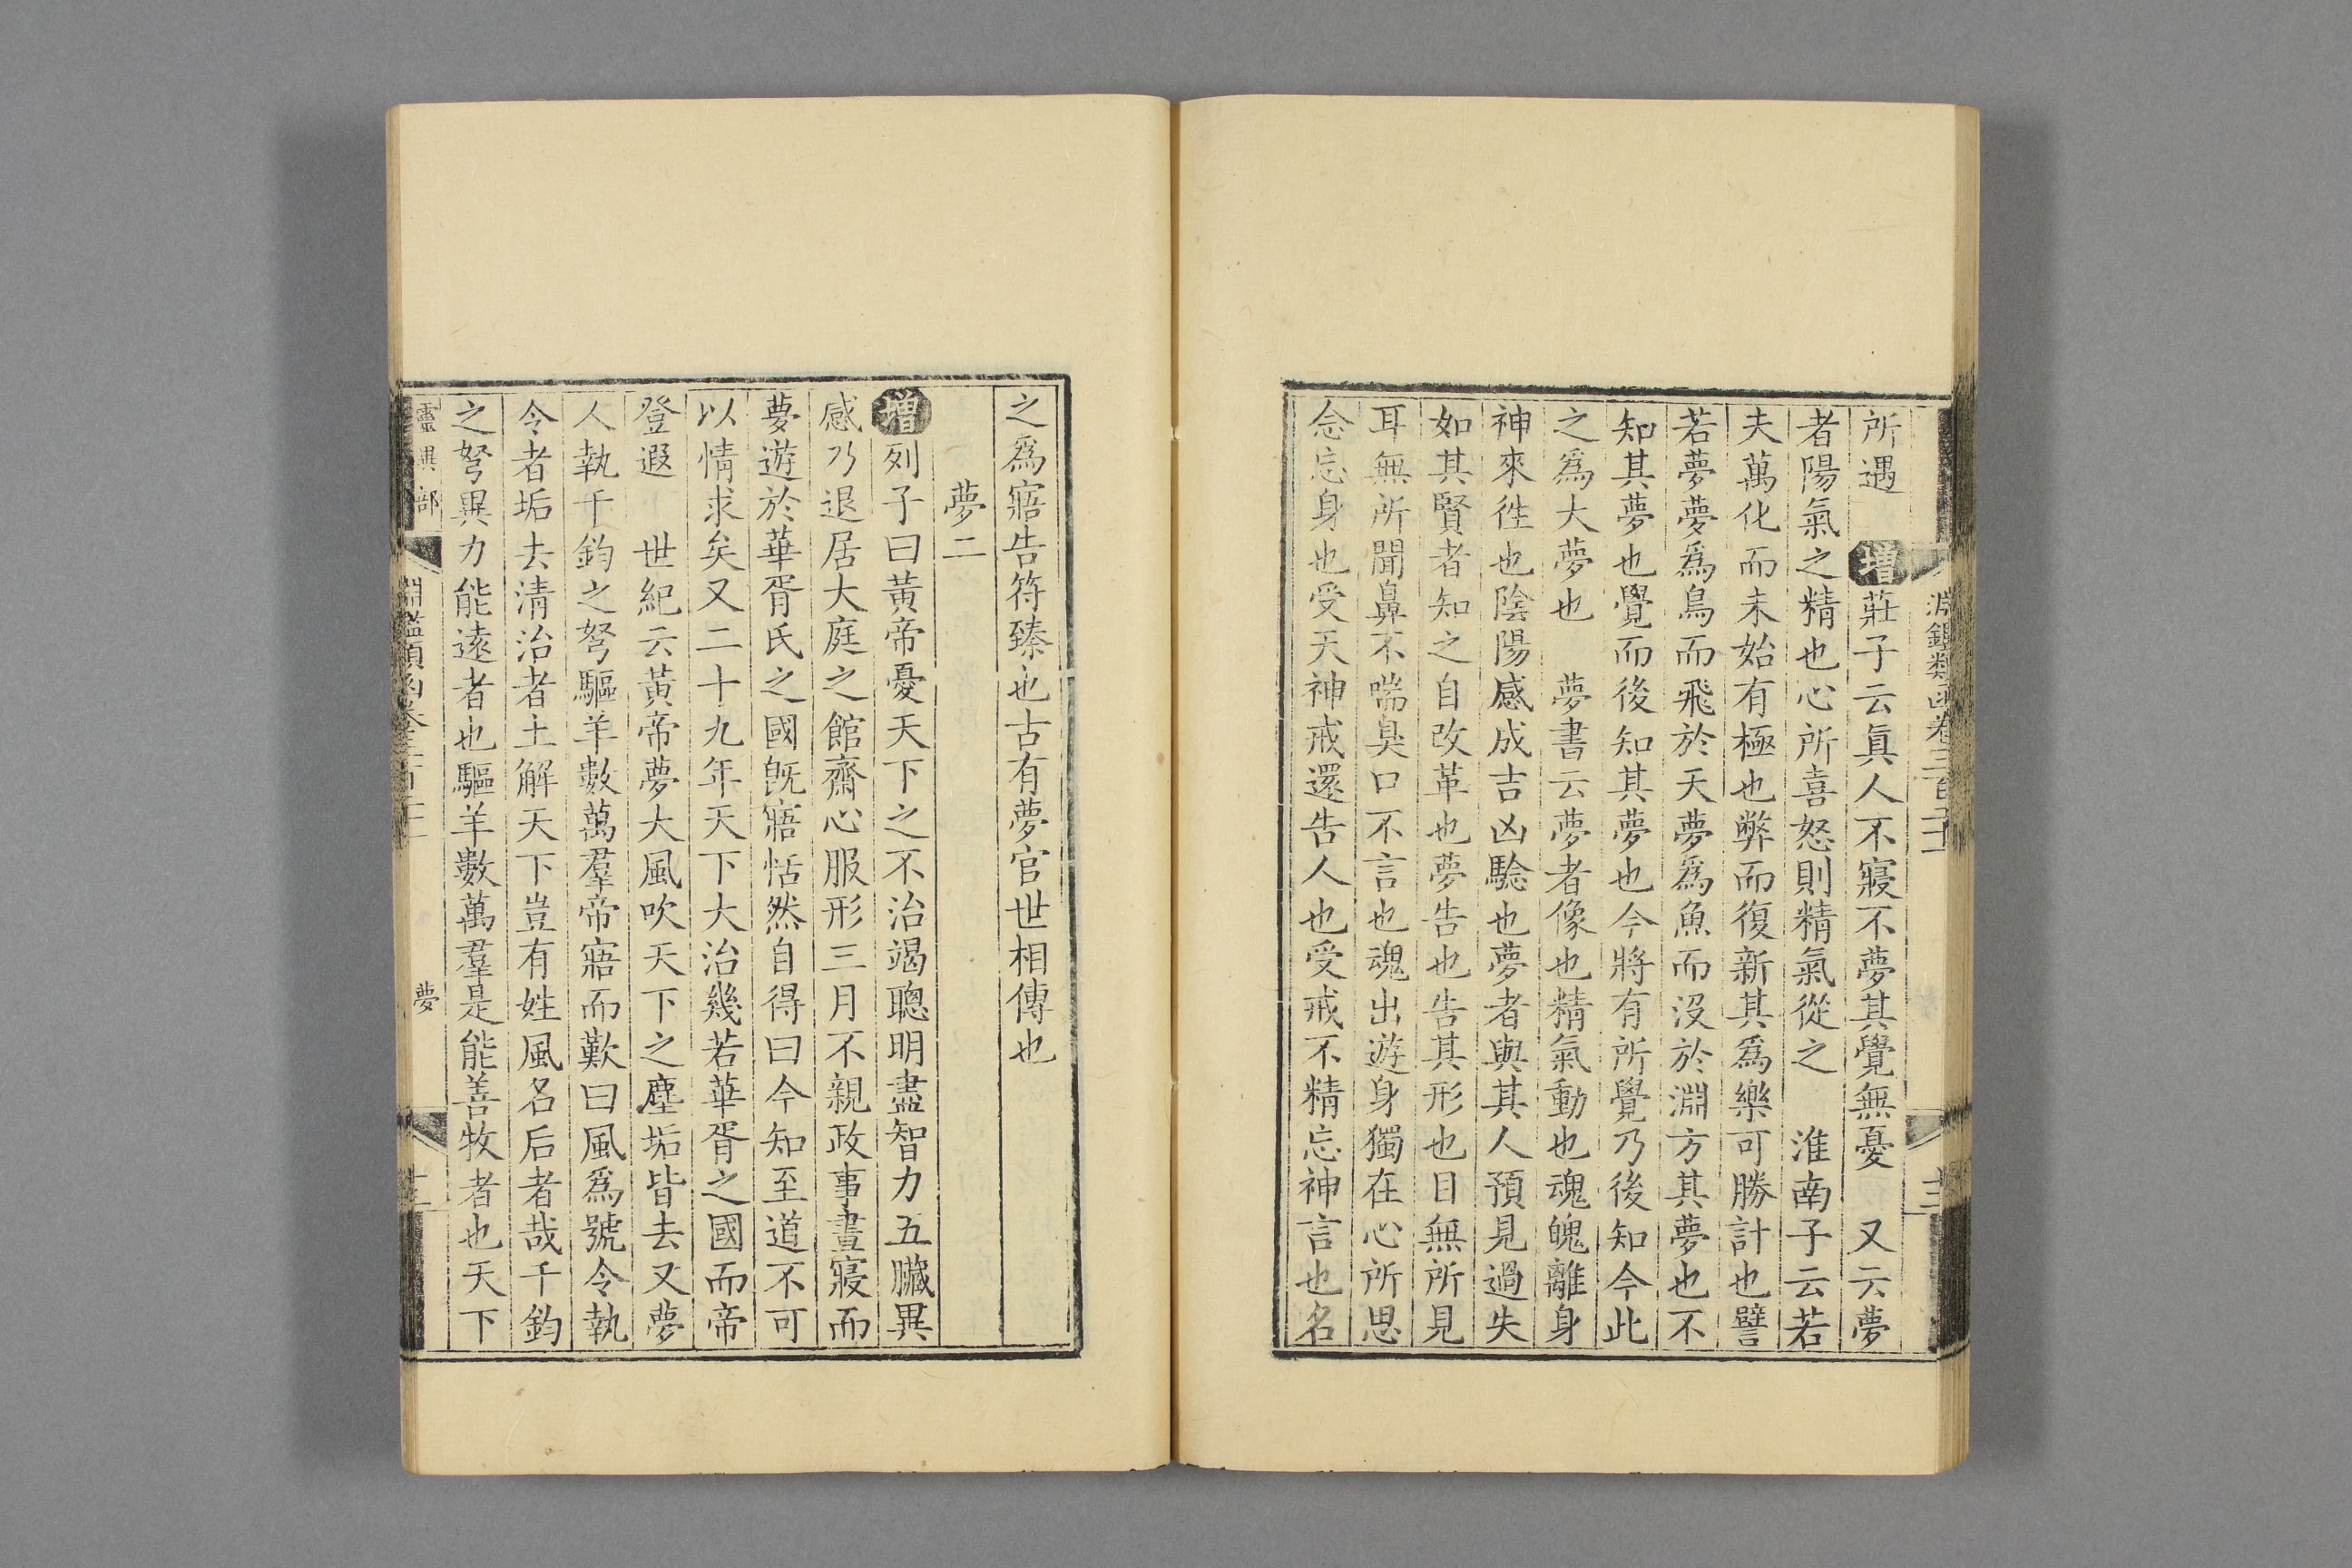 所遇　增莊子云眞人不寢不夢其覺無憂　又云夢
者陽氣之精也心所喜怒則精氣從之　淮南子云若
夫萬化而未始有極也弊而復新其爲樂可勝計也譬
若夢夢爲鳥而飛於天夢爲魚而沒於淵方其夢也不
知其夢也覺而後知其夢也今將有所覺乃後知今此
之爲大夢也　夢書云夢者像也精氣動也魂魄離身
神來徃也陰陽感成吉凶驗也夢者與其人預見過失
如其賢者知之自改革也夢告也告其形也目無所見
耳無所聞鼻不喘臭口不言也魂出遊身獨在心所思
念忘身也受天神戒還告人也受戒不精忘神言也名
之爲寤告符臻也古有夢官世相傳也
夢二
增列子曰黃帝憂天下之不治竭聰明盡智力五臟異
感乃退居大庭之館齋心服形三月不親政事晝寢而
夢遊於華胥氏之國旣寤恬然自得曰今知至道不可
以情求矣又二十九年天下大治幾若華胥之國而帝
登遐　世紀云黃帝夢大風吹天下之塵垢皆去又夢
人執千鈞之弩驅羊數萬羣帝寤而歎曰風爲號令執
令者垢去清治者土解天下豈有姓風名后者哉千鈞
之弩異力能遠者也驅羊數萬羣是能善牧者也天下
靈異部　淵鑑類函卷三百二十　夢